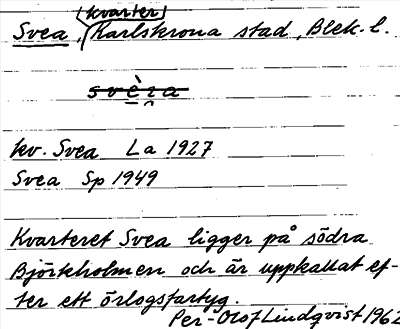 kvarter
Svea, Karlskrona stad, Blek. l.
kv. Svea La 1927
Svea Sp 1949
Kvarteret Svea ligger på södra
Björkholmen och är uppkallat ef-
ter ett örlogsfartyg.
Per-Olof Lindqvist 1962